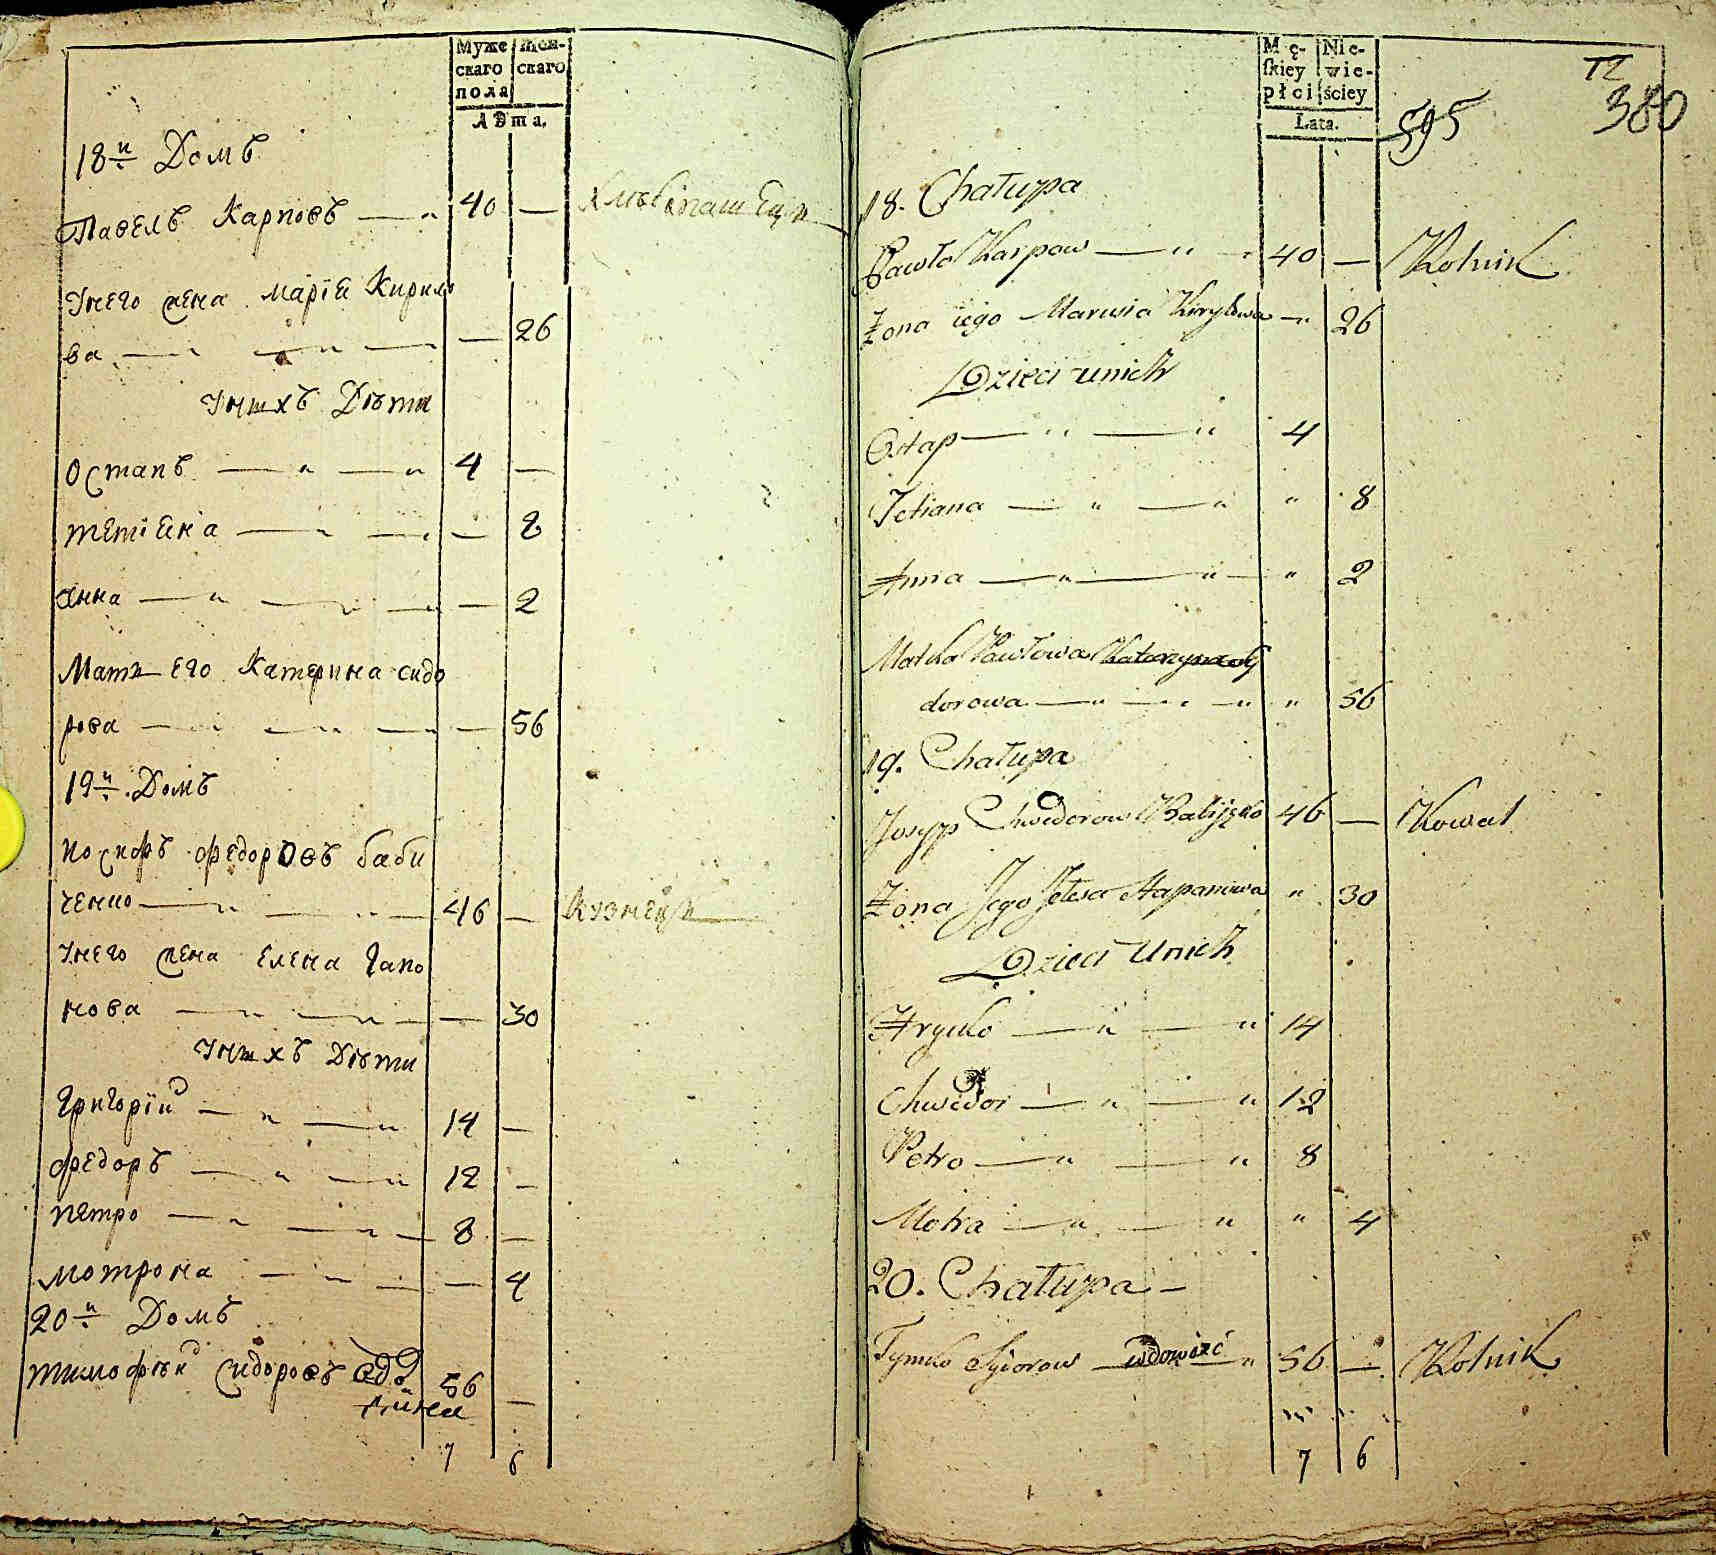 Муже
скаго
пола
Жен-
скаго
Лѣта.
18й Домъ
Павелъ Карповъ — „ 40 —
Унего жена Марія Кирило
ва — „ — „ — — 26
Унихъ Дѣти
Остапъ — „ — „ 4 —
Тетіяна — „ — „ — 8
Анна — „ — „ — 2
Мать его Катерина Сидо
рова — „ — „ — — 56
19й Домъ
Иосифъ Федоровъ Баби
ченко — „ — „ — 46 — Кузнецъ
Унего жена Елена Гапо
нова — „ — „ — — 30
Унихъ Дѣти
Григорій — „ — „ 14 —
Федоръ — „ — „ 12 —
Петро — „ — „ — 8 —
Мотрона — „ — — 4
20й Домъ
Тимофѣй Сидоровъ 56 —
7 6
Mę-
skiey
płci
Nie-
wie-
ściey
Lata.
595
380
18. Chałupa
Pawło Karpow — „ „ 40 — Rolnik
Żona iego Marusia Kiryłowa — „ 26
Dzieci unich
Ostap — „ — „ 4
Tetiana — „ — „ „ 8
Anna — „ — „ — „ 2
Matka Pawłowa Katerzyna Sy
dorowa — „ — „ — „ „ 56
19. Chałupa
Josyp Chwedorow Babiczko 46 — Kowal
Żona Jego Jelesa Hapanowa „ 30
Dzieci Unich
Hryćko — „ — „ 14
Chwedor — „ — „ 12
Petro — „ — „ 8
Motra — „ — „ „ 4
20. Chałupa —
Tymko Sydorow — wdowiec „ 56 — Rolnik
7 6